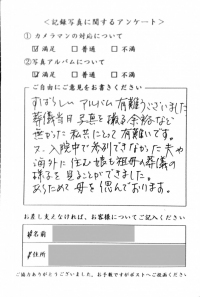 <記録写真に関するアンケート>
①カメラマンの対応について
☑満足 □普通 □不満
②写真アルバムについて
☑満足 □普通 □不満
ご自由にご意見をお書きください
すばらしい アルバム 有難うございました
葬儀当日 写真を撮る余裕など
無かった 私共にとって 有難いです。
又、入院中で参列できなかった夫や
海外に住む娘も祖母の葬儀の
様子を見ることができました。
あらためて 母を偲んでおります。
お差し支えなければ、お客様についてご記入ください
#名前
#住所
ご協力ありがとうございました。お手数ですがポストへご投函ください